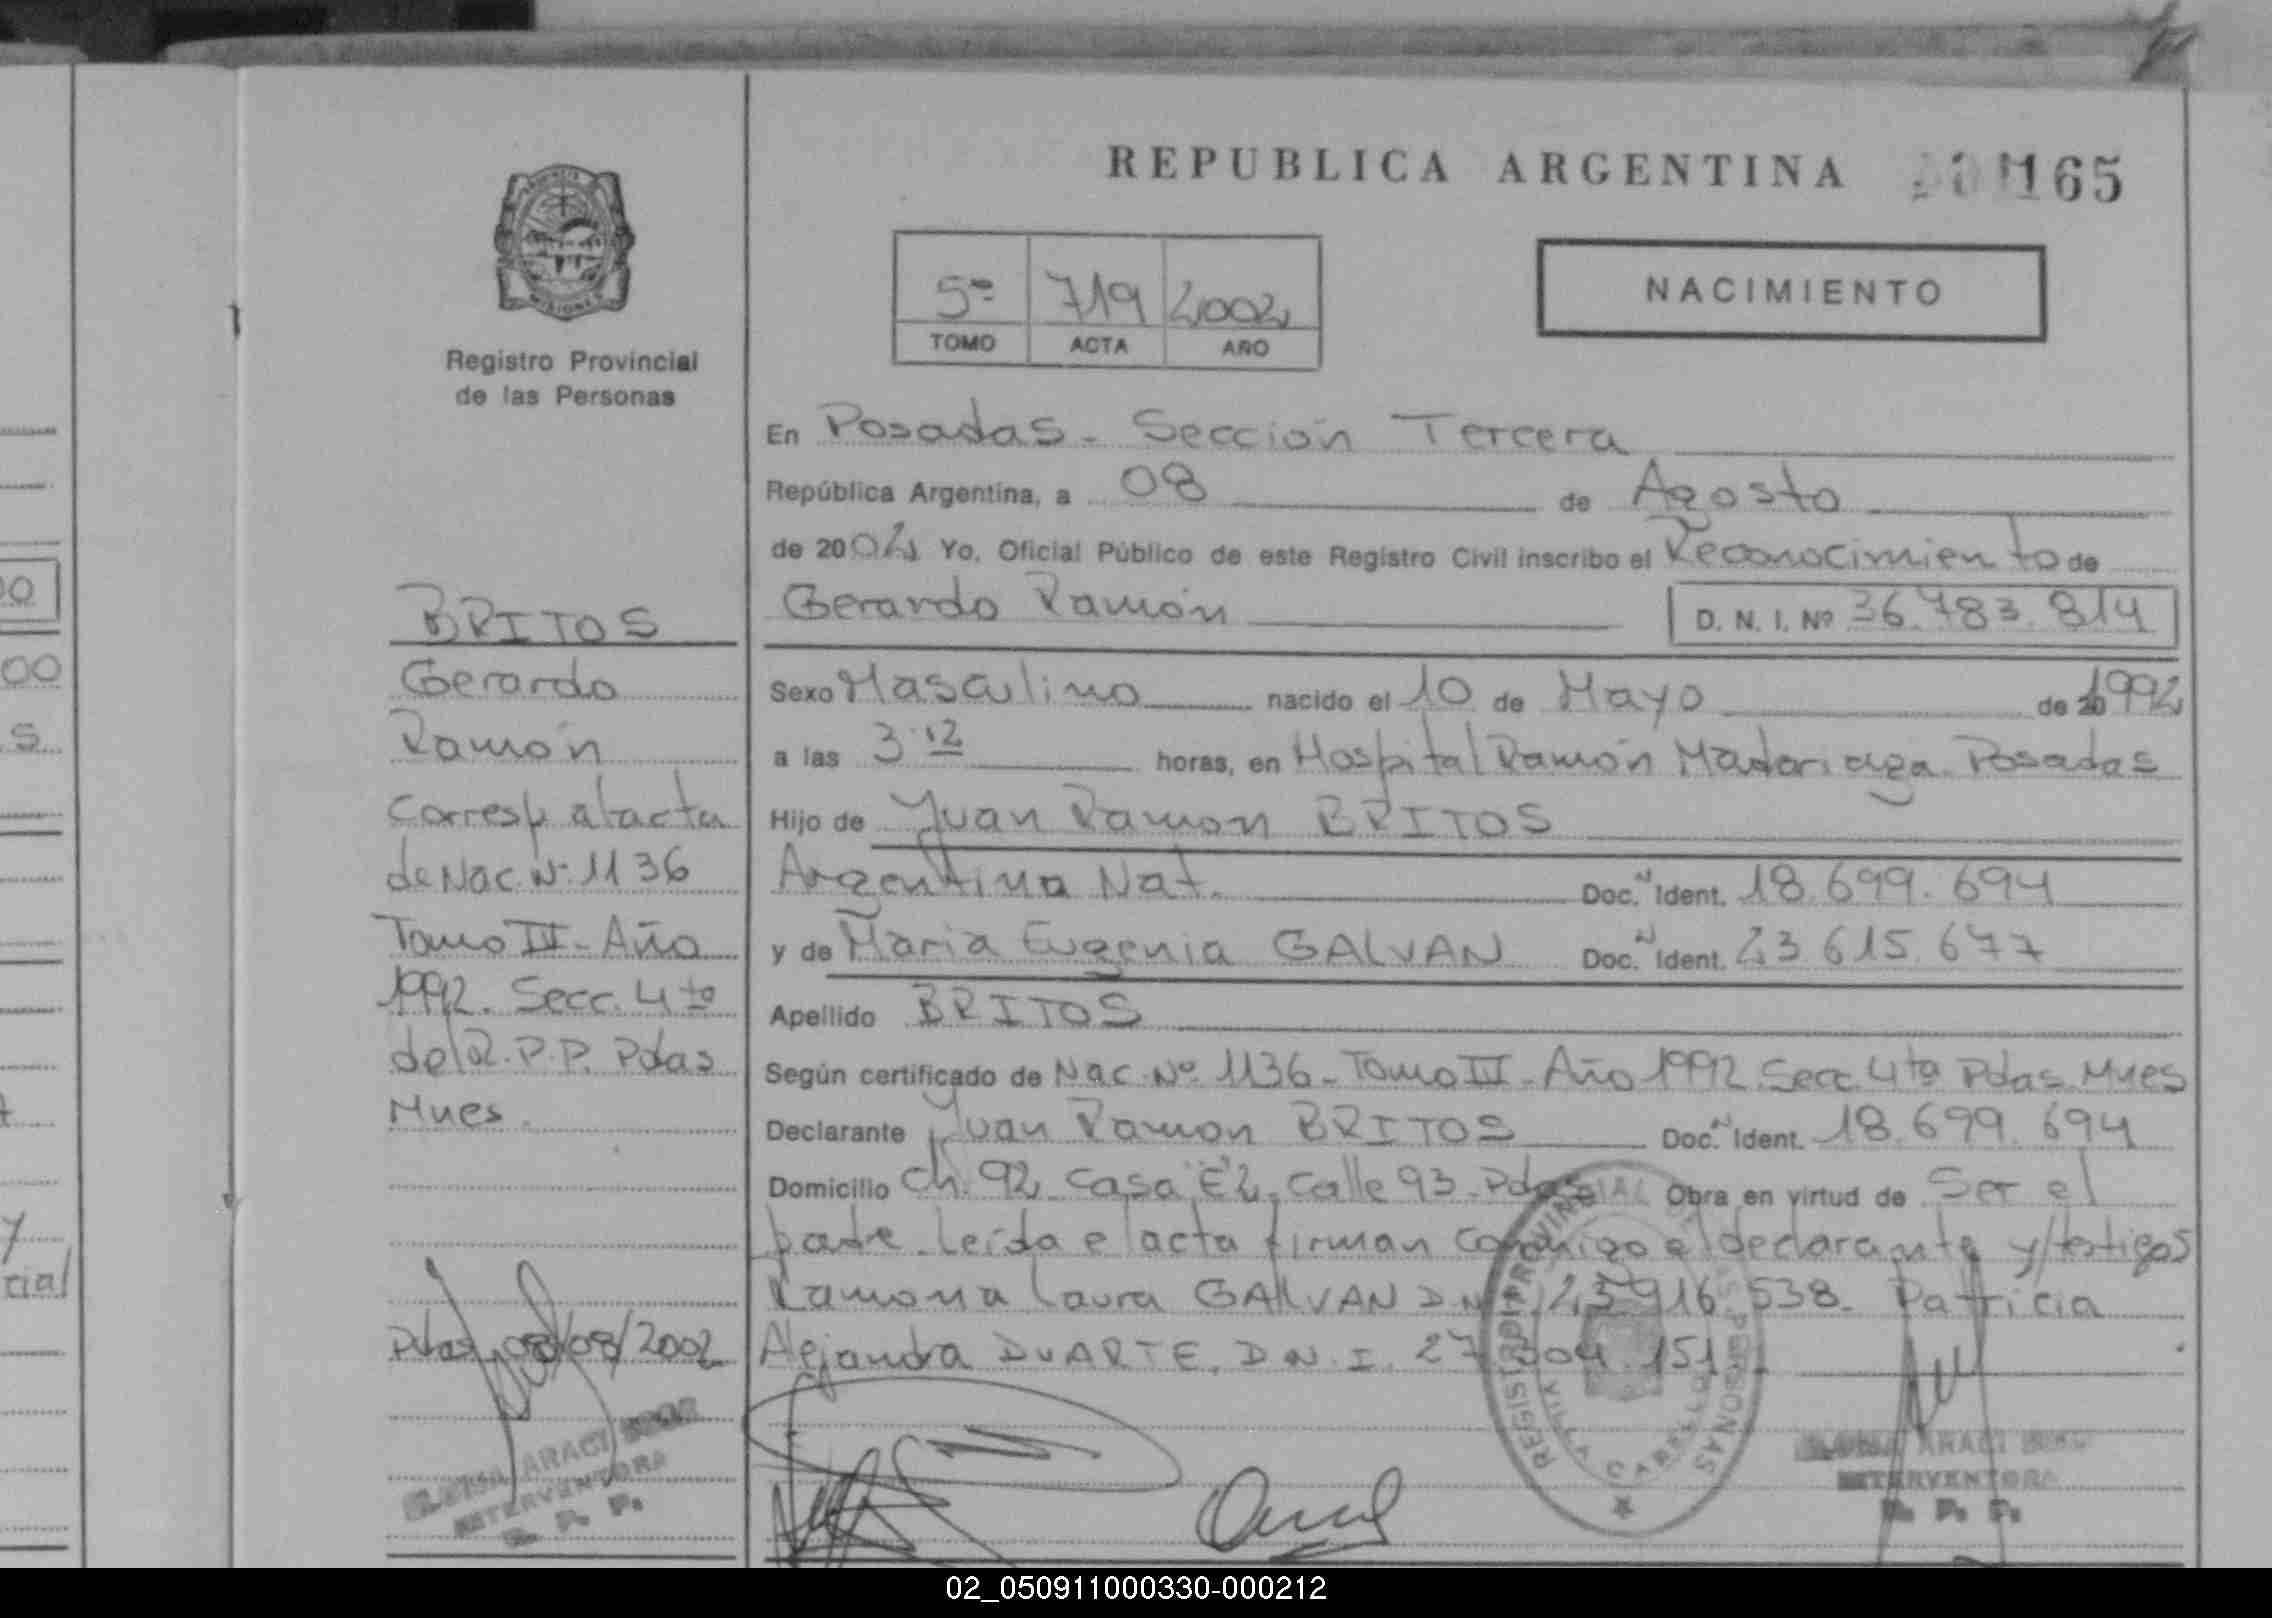 REPUBLICA ARGENTINA 165
NACIMIENTO
5º 719 2002
TOMO ACTA AÑO
Registro Provincial
de las Personas
BRITOS
Gerardo
Ramón
Corresp. al acta
de Nac. Nº 1136
Tomo III - Año
1992. Secc. 4ta
del R.P.P. Pdas
Mnes.
Pdas, 08/08/2002
ARACI
INTERVENTORA
R. P. P.
En Posadas - Sección Tercera
República Argentina, a 08 de Agosto
de 2002 Yo, Oficial Público de este Registro Civil inscribo el Reconocimiento de
Gerardo Ramón D. N. I. Nº 36.783.814
Sexo Masculino nacido el 10 de Mayo de 1992
a las 3:12 horas, en Hospital Ramón Madariaga. Posadas
Hijo de Juan Ramon BRITOS
Argentina Nat. Doc. N Ident. 18.699.694
y de Maria Eugenia GALVAN Doc. N Ident. 23.615.677
Apellido BRITOS
Según certificado de Nac. Nº 1136 - Tomo III - Año 1992. Secc. 4ta Pdas. Mnes
Declarante Juan Ramon BRITOS Doc. N Ident. 18.699.694
Domicilio Ch. 92 Casa "E2, Calle 93 - Pdas Obra en virtud de Ser el
padre. Leída el acta firman conmigo el declarante y testigos
Ramona Laura GALVAN D.N. 23 916.538. Patricia
Alejandra DUARTE. D.N.I. 27 304.151
REGISTRO PROVINCIAL DE LAS PERSONAS
VILLA CABELLO
ARACI
INTERVENTORA
R. P. P.
02_050911000330-000212